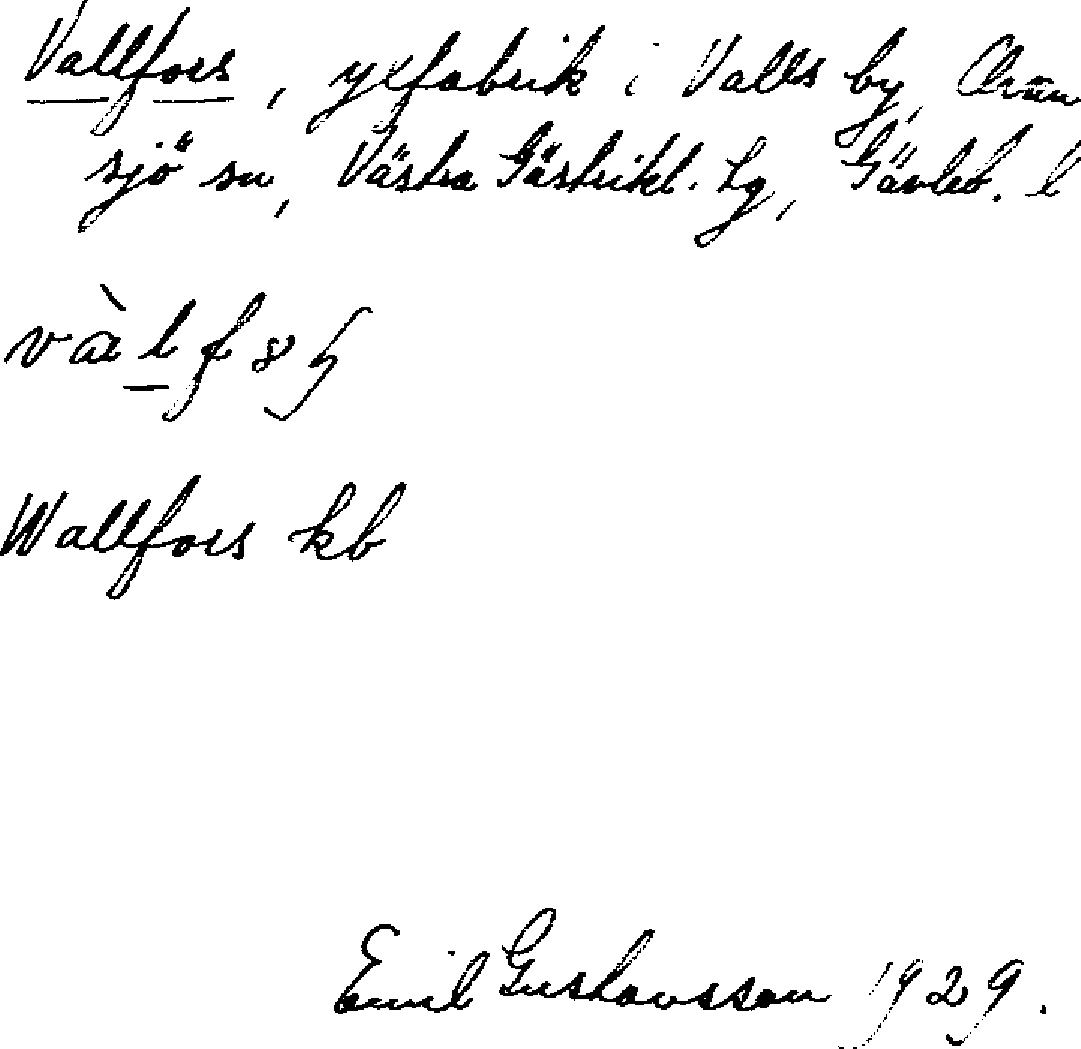 Vallfors, ylfabrik i Valls by, Årsun
sjö sn, Västra Gästrikl. tg, Gävleb. l
vàlf
Wallfors kb
Emil Gustavsson 1929.